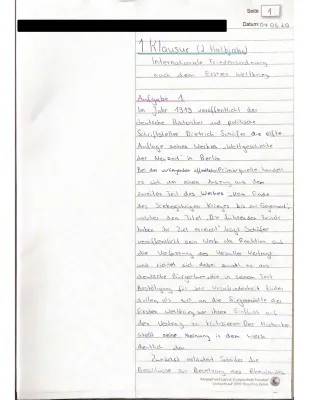 Seite 1
Datum:
1 Klausur (2 Halbjahr)
Internationale Friedensordnung
nach dem Ersten Weltkrieg
Aufgabe 1
Im Jahr 1919 veröffentlicht der
deutsche Historiker und politische
Schriftsteller Dietrich Schäfer die elfte
Auflage seines Werkes „Weltgeschichte
der Neuzeit" in Berlin
Bei der Primärquelle handelt
es sich um einen Auszug aus dem
zweiten Teil des Werkes „Vom Ende
des Siebenjährigen Krieges bis zur Gegenwart",
welcher den Titel „Die Feinde
haben ihr Ziel erreicht" trägt Schäfer
veröffentlicht sein Werk als Reaktion auf
die Verfassung des Versailler Vertrag
und richtet sich dabei an das
deutsche Bürgertum die in seinem Text
Bestätigung für ihre Unzufriedenheit finden
sollen, als auch an die Siegermächte des
Ersten Weltkrieg um ihren Einfluss auf
den Vertrag zu kritisieren Der Historiker
stellt seine Meinung in dem Werk
deutlich dar
Zunächst erläutert Schäfer die
Beschlüsse zur Besetzung des Rheinlandes